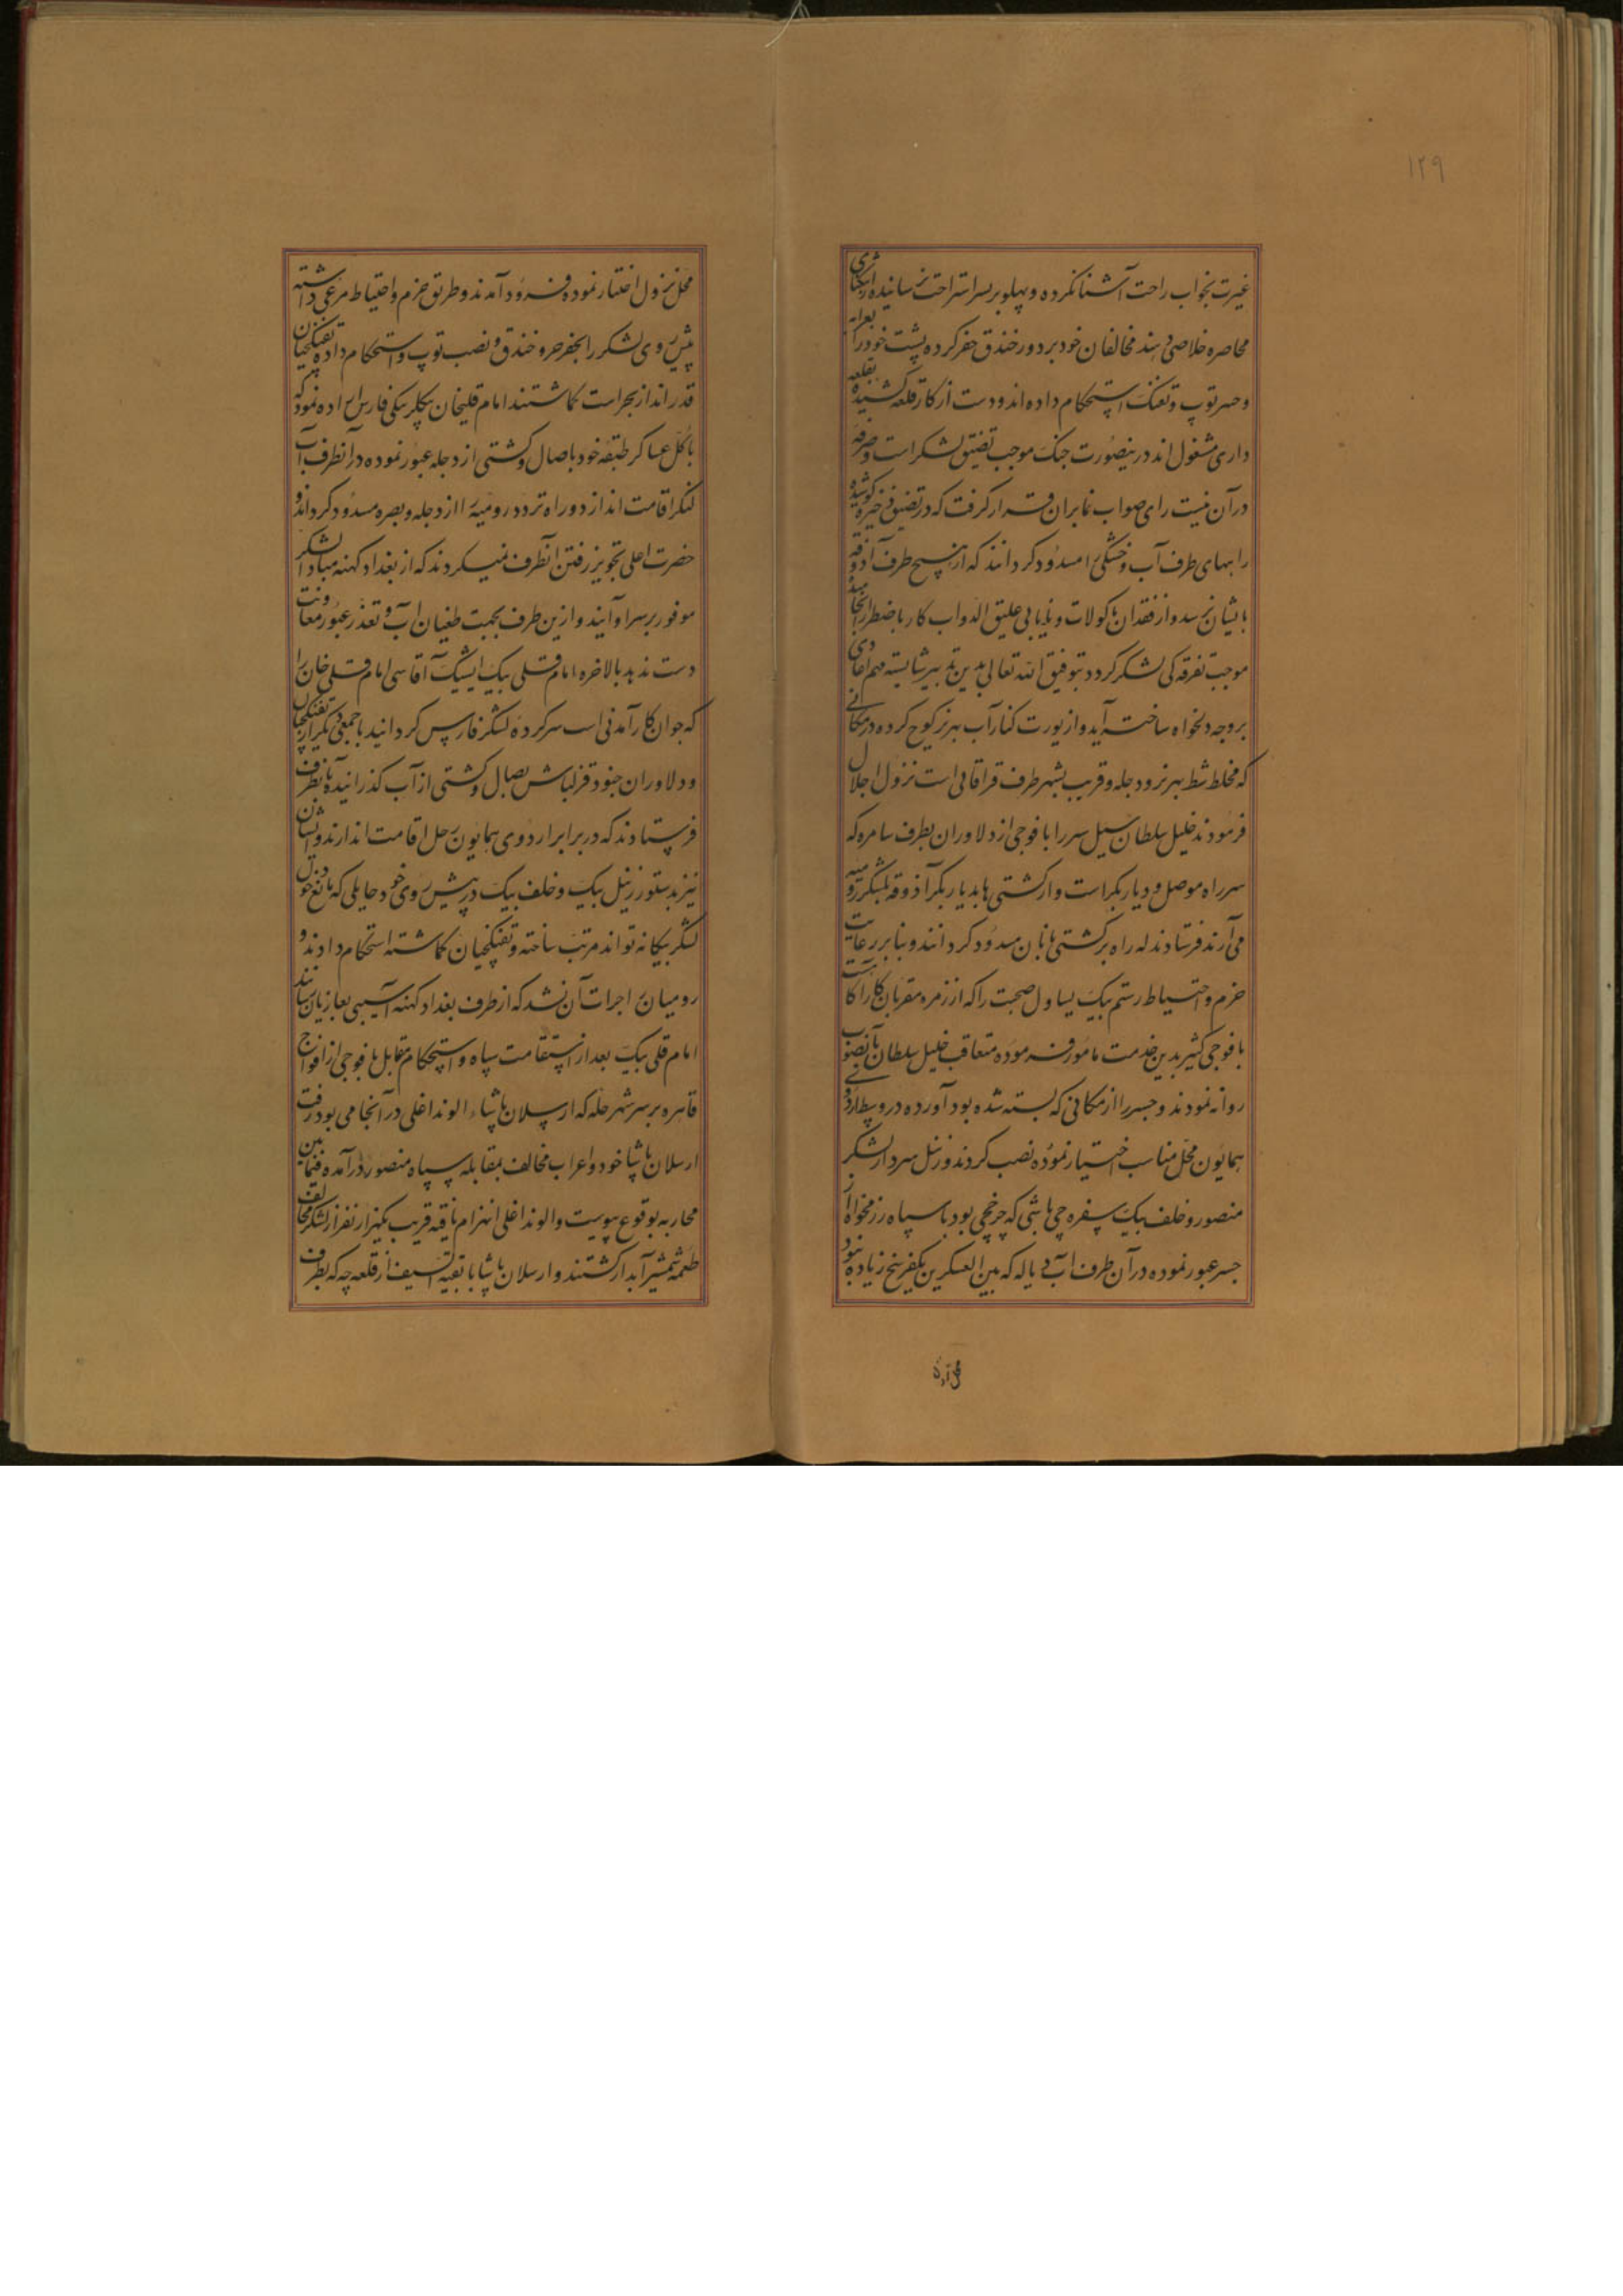 ۱۲۹
غیرت بخواب راحت آشنا نکرده و پهلو بر بستر استراحت نرسانیده را
محاصره خلاصی دهند مخالفان خود بر دور خندق حفر کرده پشت خود را
و ضرب توپ و تفنک استحکام داده‌اند و دست از کار قلعه کشیده بقلعه
داری مشغول‌اند درینصورت جنک موجب تضییق لشکر است و صرفه
در آن نیست رای صواب نما بران قرار گرفت که در تضییق ذخیره کوشیده
راههای طرف آب و خشکی را مسدود کردانند که از هیچ طرف آذوقه
بایشان نرسد و از فقدان ماکولات و نایابی علیق الدواب کار باضطرار انجامیده
موجب تفرقه کی لشکر کردد بتوفیق الله تعالی بدین تدبیر شایسته مهم اعادی
بر وجه دلخواه ساخته آید و از یورت کنار آب بهرز کوچ کرده در مکانی
که مخلط شط بهرز و دجله و قریب بشهر طرف قراقاپی است نزول اجلال
فرمودند خلیل سلطان سیل سپر را با فوجی از دلاوران بطرف سامره که
سر راه موصل و دیار بکر است و از کشتی ها بدیار بکر آذوقه بلشکر رومیه
می‌آرند فرستادند که راه بر کشتی بانان مسدود کردانند و بنا بر رعایت
حزم و احتیاط رستم بیک یساول صحبت را که از زمره مقربان کار آکاست
با فوجی کثیر بدین خدمت مامور فرموده متعاقب خلیل سلطان بآنصوب
روانه نمودند و جسر را از مکانی که بسته شده بود آورده در وسط اردوی
همایون محل مناسب اختیار نموده نصب کردند و زینل سردار لشکر
منصور و خلف بیک سفره چی باشی که چرخچی بود با سپاه رزمخواه از
جسر عبور نموده در آن طرف آب دیاله که بین العسکرین یکفرسخ زیاده نبود
محل نزول اختیار نموده فرود آمدند و طریق حزم و احتیاط مرعی داشته
پیش روی لشکر را بحفر خندق و نصب توپ و استحکام داده تفنکچیان
قدر انداز بحراست کماشتند امام قلیخان بیکلربیکی فارس اراده نمود که
با کل عساکر طبقه خود باصال و کشتی از دجله عبور نموده در آنطرف آب
لنکر اقامت اندازد و راه تردد رومیه را از دجله و بصره مسدود کرداند و
حضرت اعلی تجویز رفتن آنطرف نمیکردند که از بغداد کهنه مبادا لشکر
موفور بر سر او آیند و ازین طرف بجهت طغیان آب و تعذر عبور معاونت
دست ندهد بالاخره امام قلی بیک ایشیک آقاسی امام قلی خان را
که جوان کار آمدنی است سرکرده لشکر فارس کردانید با جمعی دیکر از تفنکچیان
و دلاوران جنود قزلباش بصال و کشتی از آب کذرانیده بآنطرف
فرستادند که در برابر اردوی همایون رحل اقامت اندازند و ایشان
نیز بدستور زینل بیک و خلف بیک در پیش روی خود حایلی که مانع دخول
لشکر بیکانه تواند مرتب ساخته و تفنکچیان کماشته استحکام دادند و
رومیان را جرات آن نشد که از طرف بغداد کهنه آسیبی بغازیان رسانند
امام قلی بیک بعد از استقامت سپاه و استحکام مقابل با فوجی از افواج
قاهره بر سر شهر حله که ارسلان پاشاء الوند اغلی در آنجا می بود رفت
ارسلان پاشا خود و اعراب مخالف بمقابله سپاه منصور در آمده فیمابین
محاربه بوقوع پیوست و الوند اغلی انهزام یافته قریب بکهزار نفر از لشکر مخالف
طعمه شمشیر آبدار کشتند و ارسلان پاشا با بقیة السیف از قلعه چه که بطرف